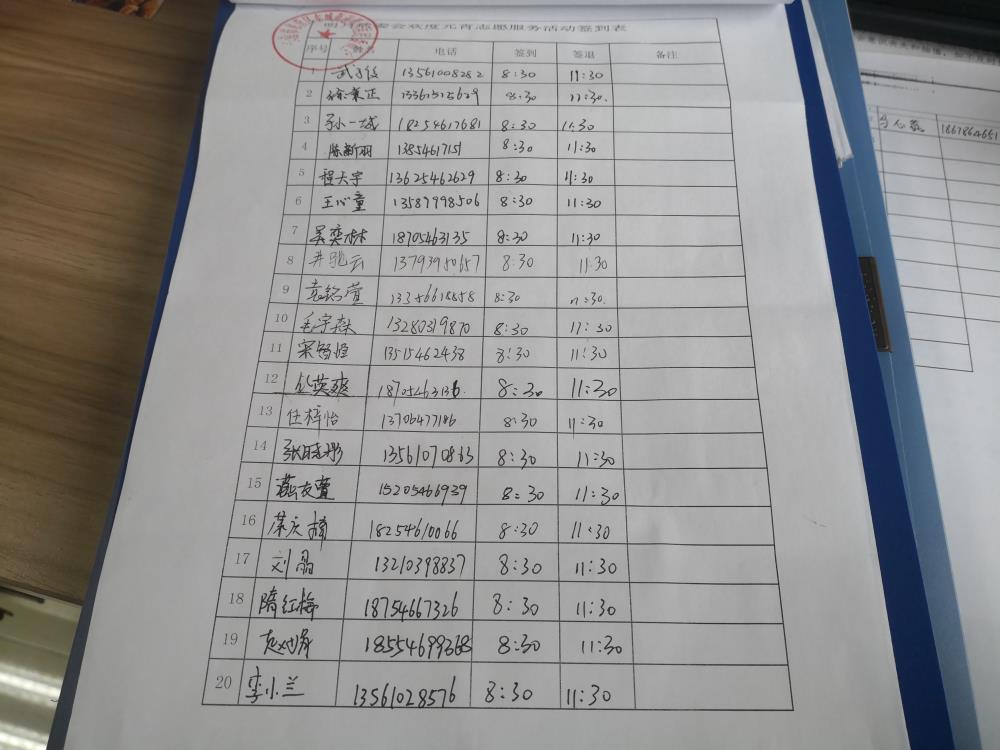 委会欢度元宵志愿服务活动签到表
序号 姓名 电话 签到 签退 备注
1 13561008282 8:30 11:30
2 13361515629 8:30 11:30
3 孙一城 18254617681 8:30 11:30
4 陈新羽 13854617151 8:30 11:30
5 程大宇 13625462629 8:30 11:30
6 王心童 13589998506 8:30 11:30
7 吴奕林 18705463135 8:30 11:30
8 井驰云 13793950657 8:30 11:30
9 袁铭萱 13356618858 8:30 11:30
10 毛宇森 13280319870 8:30 11:30
11 宋智恒 13515462438 8:30 11:30
12 丛英爽 18705463136 8:30 11:30
13 任梓怡 13706477186 8:30 11:30
14 张晓彤 13561070863 8:30 11:30
15 燕友萱 15205466939 8:30 11:30
16 蔡庆楠 18254610066 8:30 11:30
17 刘晶 13210398837 8:30 11:30
18 隋红梅 18754667326 8:30 11:30
19 18554699368 8:30 11:30
20 李小兰 13561028576 8:30 11:30
1867864651